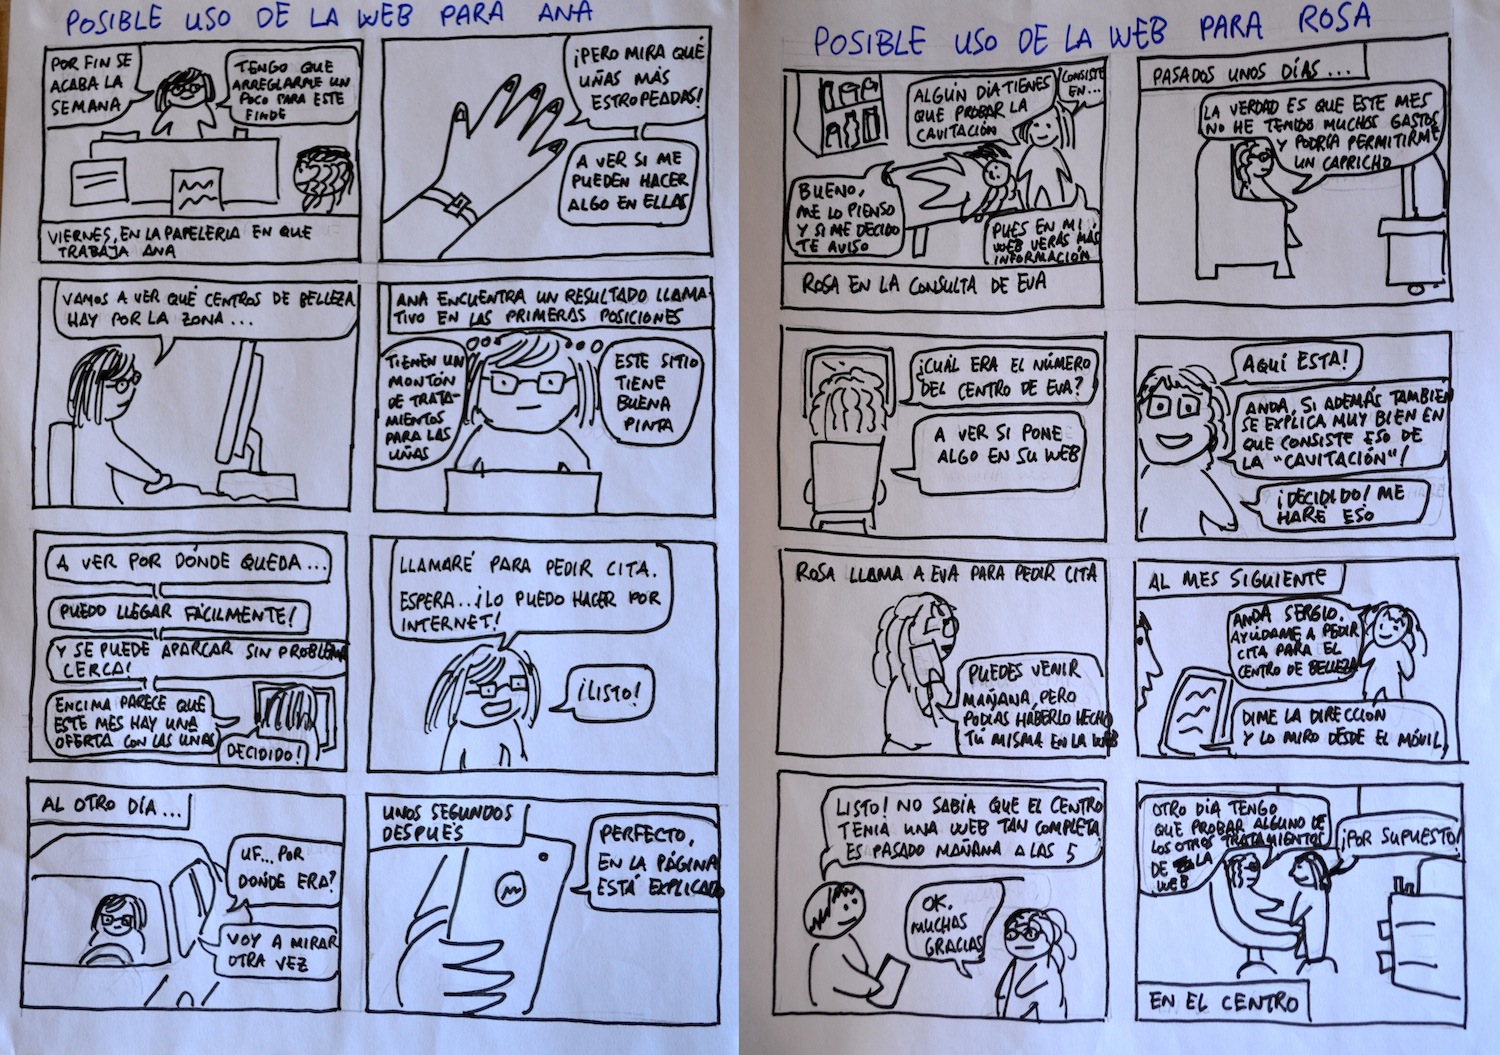 POSIBLE USO DE LA WEB PARA ANA
POR FIN SE
ACABA LA
SEMANA
TENGO QUE
ARREGLARME UN
POCO PARA ESTE
FINDE
VIERNES, EN LA PAPELERIA EN QUE
TRABAJA ANA
¡PERO MIRA QUÉ
UÑAS MÁS
ESTROPEADAS!
A VER SI ME
PUEDEN HACER
ALGO EN ELLAS
VAMOS A VER QUÉ CENTROS DE BELLEZA
HAY POR LA ZONA...
ANA ENCUENTRA UN RESULTADO LLAMA-
TIVO EN LAS PRIMERAS POSICIONES
TIENEN UN
MONTÓN
DE TRATA-
MIENTOS
PARA LAS
UÑAS
ESTE SITIO
TIENE
BUENA
PINTA
A VER POR DÓNDE QUEDA...
PUEDO LLEGAR FÁCILMENTE!
Y SE PUEDE APARCAR SIN PROBLEMA
CERCA!
ENCIMA PARECE QUE
ESTE MES HAY UNA
OFERTA CON LAS UÑAS
DECIDIDO!
LLAMARÉ PARA PEDIR CITA.
ESPERA...¡LO PUEDO HACER POR
INTERNET!
¡LISTO!
AL OTRO DÍA...
UF...POR
DONDE ERA?
VOY A MIRAR
OTRA VEZ
UNOS SEGUNDOS
DESPUÉS
PERFECTO,
EN LA PÁGINA
ESTÁ EXPLICADO
POSIBLE USO DE LA WEB PARA ROSA
ALGÚN DÍA TIENES
QUE PROBAR LA
CAVITACIÓN
CONSISTE
EN...
BUENO,
ME LO PIENSO
Y SI ME DECIDO
TE AVISO
PUES EN MI
WEB VERÁS MÁS
INFORMACIÓN
ROSA EN LA CONSULTA DE EVA
PASADOS UNOS DÍAS...
LA VERDAD ES QUE ESTE MES
NO HE TENIDO MUCHOS GASTOS
Y PODRÍA PERMITIRME
UN CAPRICHO
¿CUÁL ERA EL NÚMERO
DEL CENTRO DE EVA?
A VER SI PONE
ALGO EN SU WEB
AQUÍ ESTA!
ANDA, SI ADEMÁS TAMBIEN
SE EXPLICA MUY BIEN EN
QUE CONSISTE ESO DE
LA "CAVITACIÓN"!
¡DECIDIDO! ME
HARÉ ESO
ROSA LLAMA A EVA PARA PEDIR CITA
PUEDES VENIR
MAÑANA, PERO
PODÍAS HABERLO HECHO
TÚ MISMA EN LA WEB
AL MES SIGUIENTE
ANDA SERGIO,
AYÚDAME A PEDIR
CITA PARA EL
CENTRO DE BELLEZA
DIME LA DIRECCIÓN
Y LO MIRO DESDE EL MÓVIL
LISTO! NO SABÍA QUE EL CENTRO
TENIA UNA WEB TAN COMPLETA
ES PASADO MAÑANA A LAS 5
OK,
MUCHAS
GRACIAS
OTRO DÍA TENGO
QUE PROBAR ALGUNO DE
LOS OTROS TRATAMIENTOS
DE LA
WEB
¡POR SUPUESTO!
EN EL CENTRO